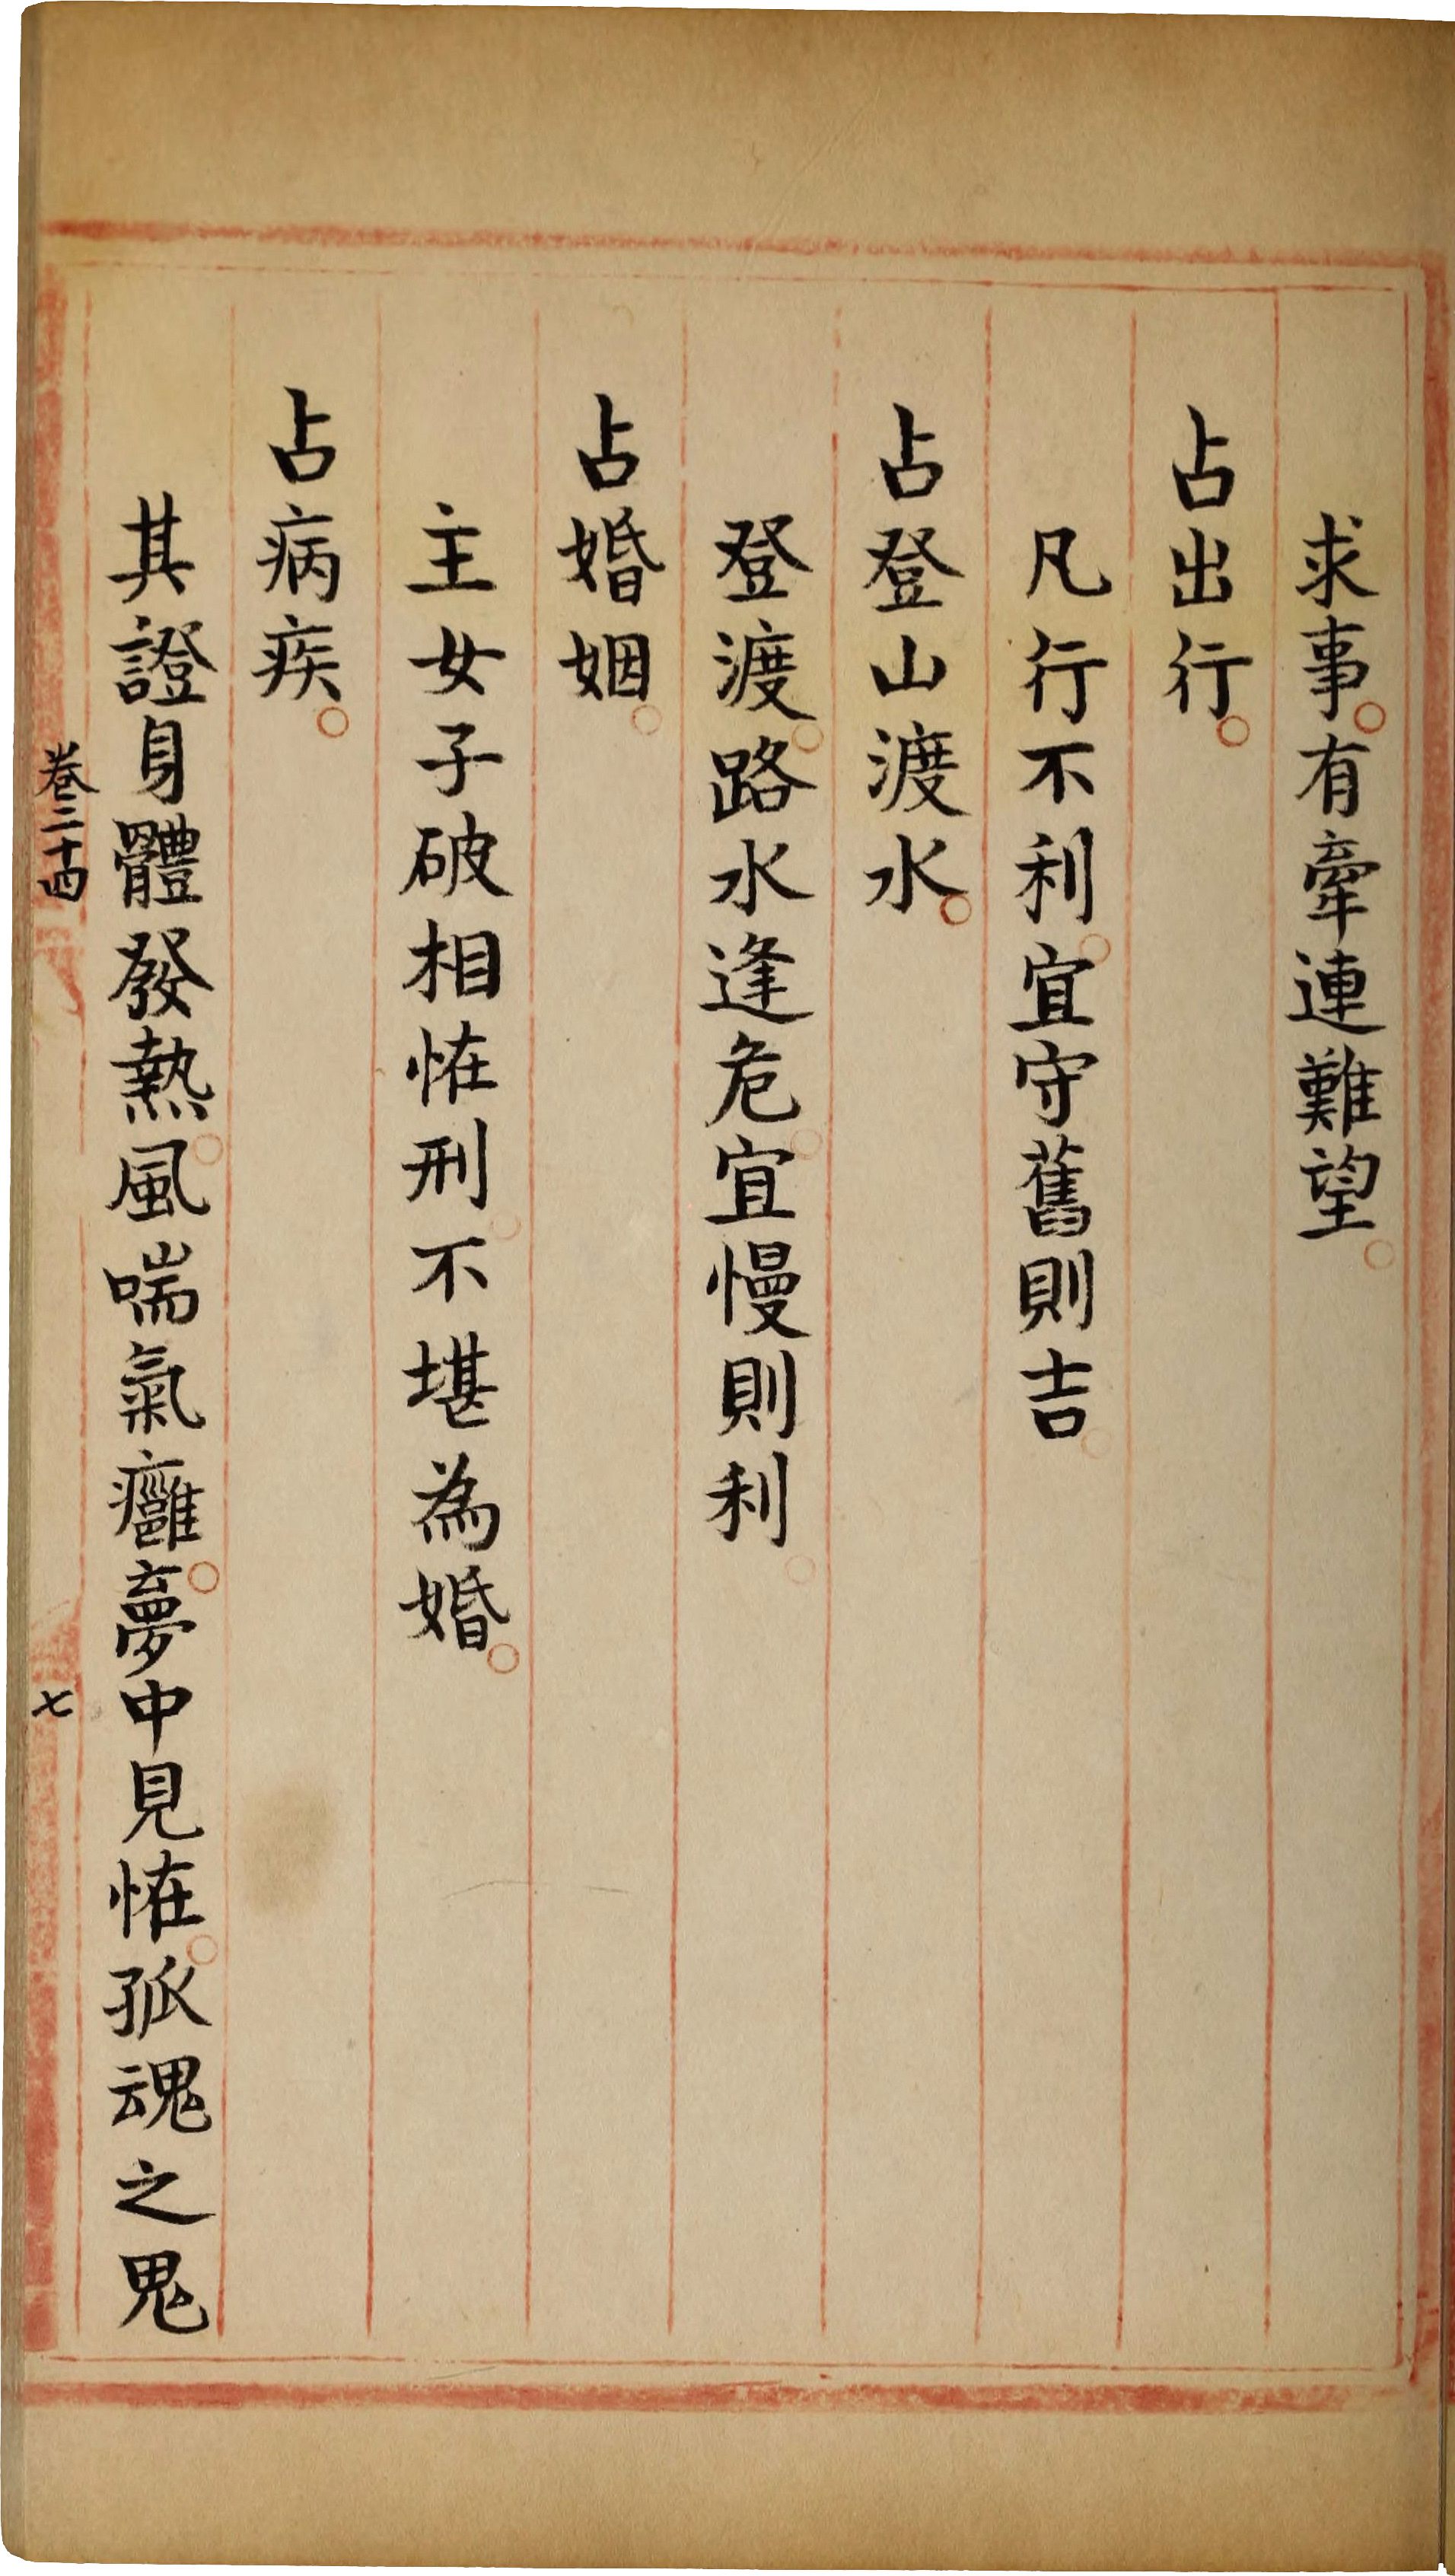 求事。有牽連難望。
占出行。
凡行不利。宜守舊則吉。
占登山渡水。
登渡。路水逢危。宜慢則利。
占婚姻。
主女子破相恠刑。不堪為婚。
占病疾。
其證身體發熱。風喘氣癰。夢中見恠。孤魂之鬼
卷二十四
七